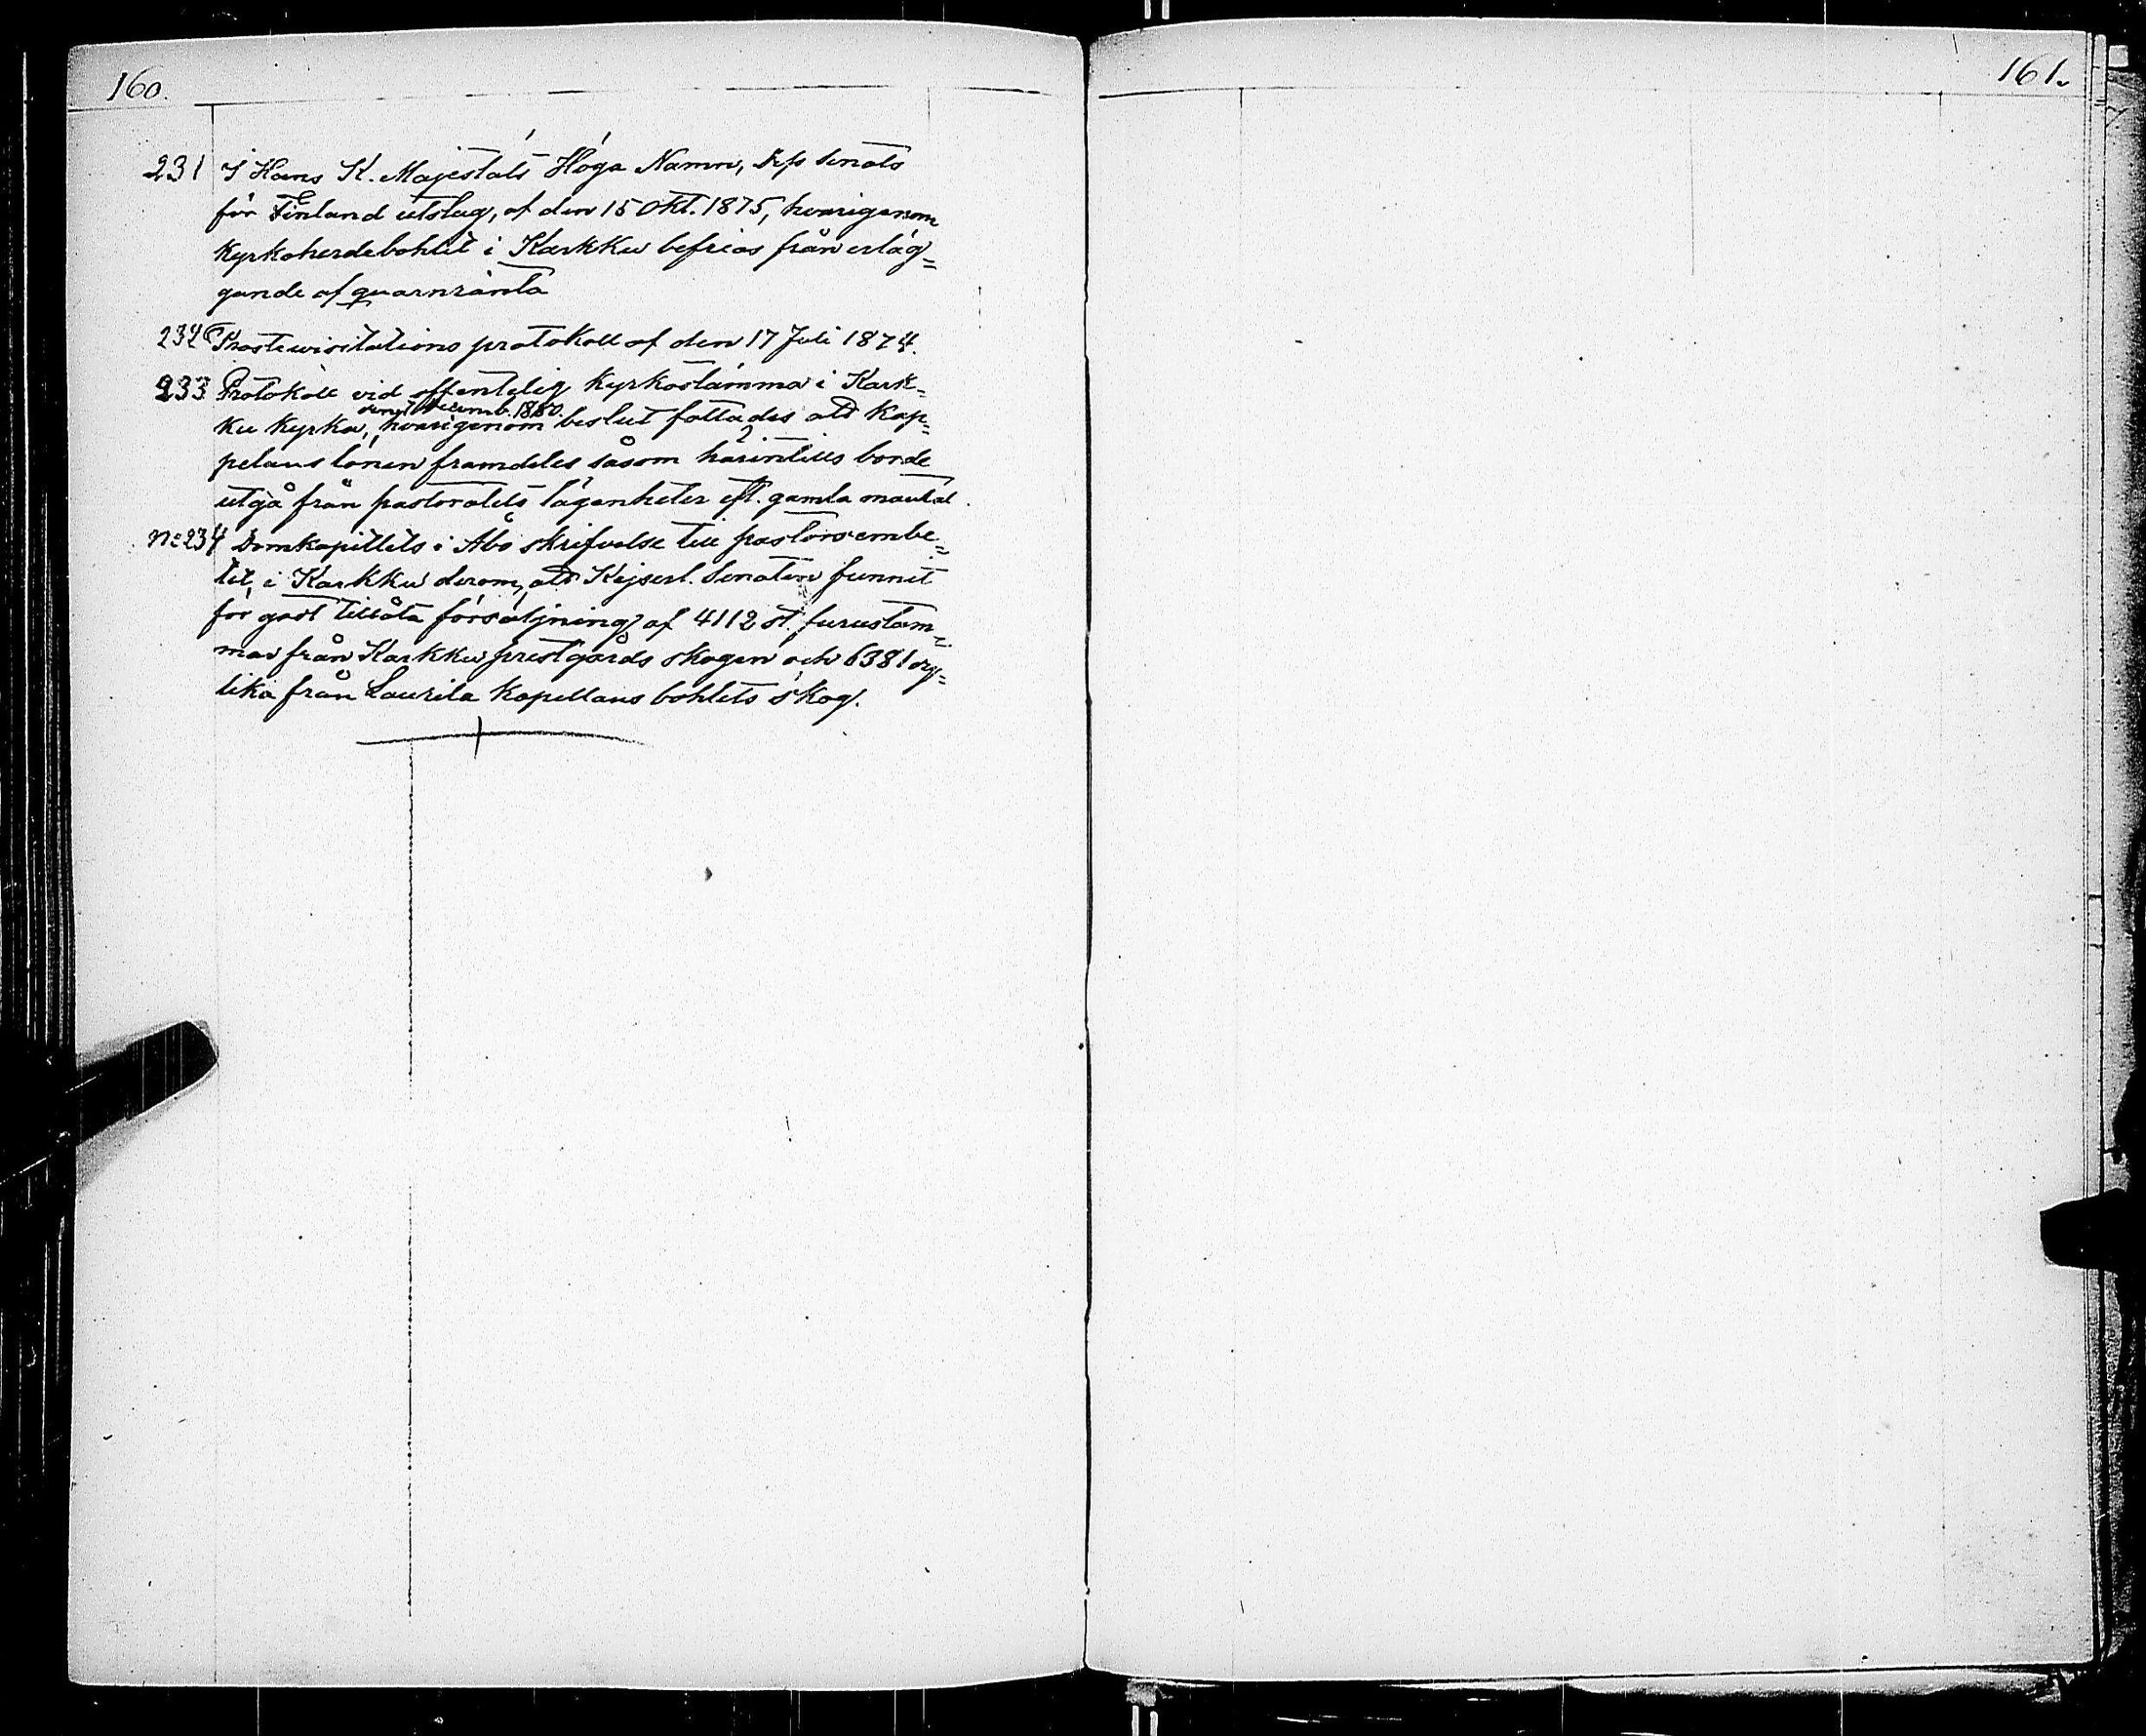 160.
161.
231 I Hans K. Majestäts Höga Namn, Dess Senats
för Finland utslag, af den 15 Okt. 1875, hvarigenom
Kyrkoherdebohlet i Karkku befrias från erläg=
gande af quarnränta
232 Prostevisitations protokoll af den 17 Juli 1874.
233 Protokoll vid offentelig Kyrkostämma i Kark=
decemb. 1880.
ku Kyrka, hvarigenom beslut fattades att Kap=
pelans lönen framdeles såsom härintills borde
utgå från pastoratets lägenheter eft. gamla mantal.
No 234 Domkapitlets i Åbo skrifvelse till pastorsembe=
tet i Karkku derom, att Kejserl. Senaten funnit
för godt tillåta försäljning af 4112 st. furustam=
mar från Karkku prestgårds skogen och 6381 dy=
lika från Laurila Kapellans bohlets skog.